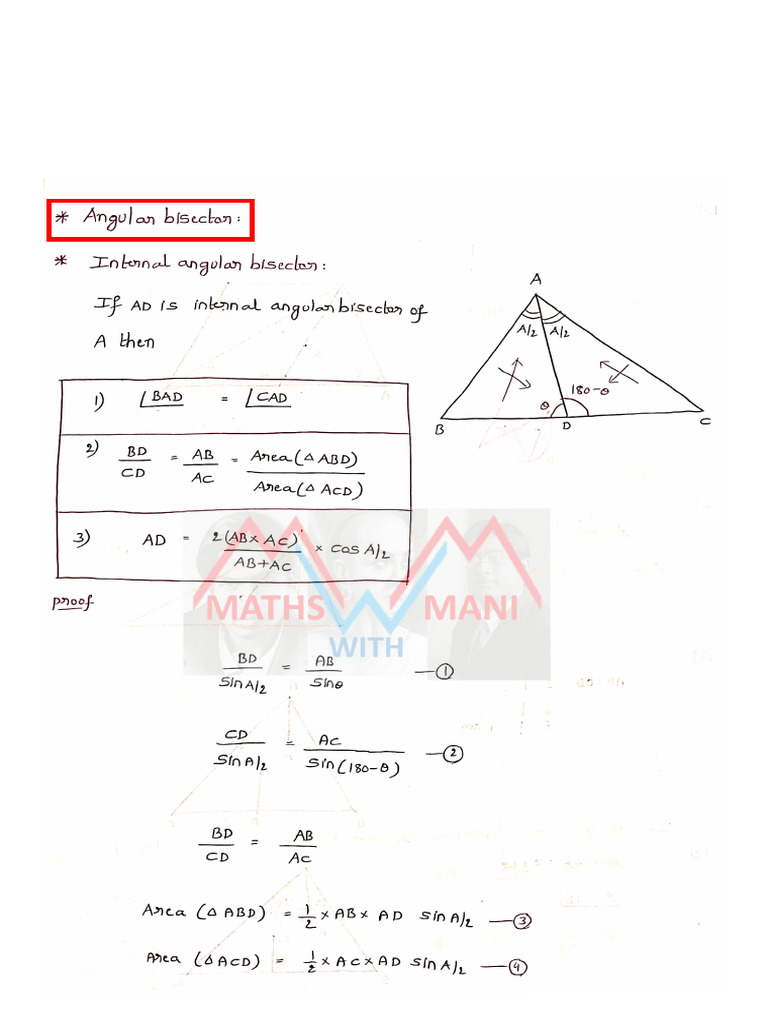 * Angular bisector:
* Internal angular bisector:
If AD is internal angular bisector of
A then
1) ∠BAD = ∠CAD
2) BD/CD = AB/AC = Area(△ABD)/Area(△ACD)
3) AD = 2(AB×AC)/AB+AC × cos A/2
A
A/2 A/2
θ 180-θ
B D C
proof
MATHS WITH MANI
BD/sinA/2 = AB/sinθ —①
CD/sinA/2 = AC/sin(180-θ) —②
BD/CD = AB/AC
Area (△ABD) = 1/2 × AB × AD sinA/2 —③
Area (△ACD) = 1/2 × AC × AD sinA/2 —④